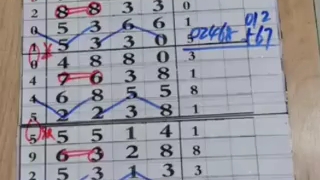 2 8 8 3 3 0
0 5 3 6 6 1 02468 012
1 5 3 3 0 5 +67
0 4 8 8 0 3
4 7 6 3 8 1
4 6 8 5 5 8
5 2 2 3 8 1
5 5 5 1 4 1
9 6 3 2 8 8
2 5 3 1 3 3